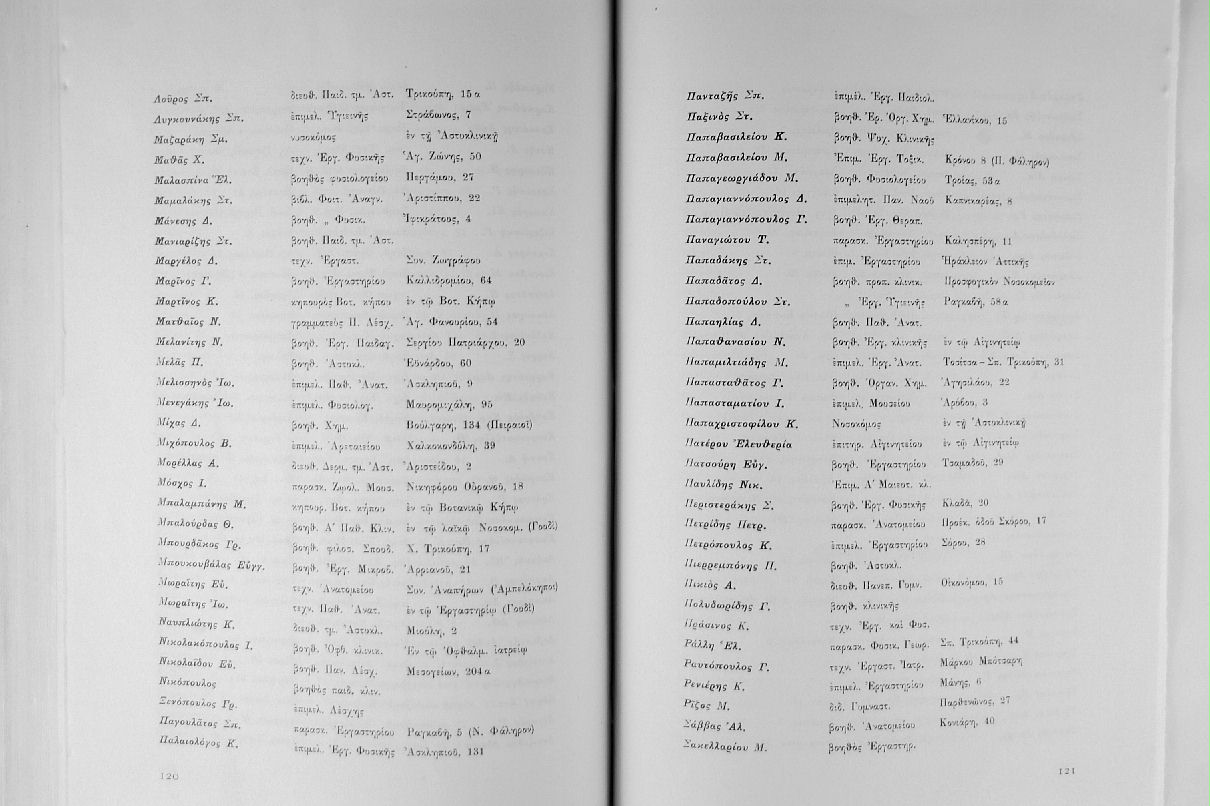 Λοῦρος Σπ. διευθ. Παιδ. τμ. Ἀστ. Τρικούπη, 15 α
Λυγκουνάκης Σπ. ἐπιμελ. Ὑγιεινῆς Στράβωνος, 7
Μαζαράκη Σμ. νοσοκόμος ἐν τῇ Ἀστυκλινικῇ
Μαθᾶς Χ. τεχν. Ἐργ. Φυσικῆς Ἁγ. Ζώνης, 50
Μαλασπίνα Ἑλ. βοηθὸς φυσιολογείου Περγάμου, 27
Μαμαλάκης Στ. βιβλ. Φοιτ. Ἀναγν. Ἀριστίππου, 22
Μάνεσης Δ. βοηθ. „ Φυσικ. Ἰφικράτους, 4
Μανιαρίζης Στ. βοηθ. Παιδ. τμ. Ἀστ.
Μαργέλος Δ. τεχν. Ἐργαστ. Συν. Ζωγράφου
Μαρῖνος Γ. βοηθ. Ἐργαστηρίου Καλλιδρομίου, 64
Μαρτῖνος Κ. κηπουρὸς Βοτ. κήπου ἐν τῷ Βοτ. Κήπῳ
Ματθαῖος Ν. γραμματεὺς Π. Λέσχ. Ἁγ. Φανουρίου, 54
Μελανίτης Ν. βοηθ. Ἐργ. Παιδαγ. Σεργίου Πατριάρχου, 20
Μελᾶς Π. βοηθ. Ἀστυκλ. Εὐνάρδου, 60
Μελισσηνὸς Ἰω. ἐπιμελ. Παθ. Ἀνατ. Ἀσκληπιοῦ, 9
Μενεγάκης Ἰω. ἐπιμελ. Φυσιολογ. Μαυρομιχάλη, 95
Μίχας Δ. βοηθ. Χημ. Βούλγαρη, 134 (Πειραιοῖ)
Μιχόπουλος Β. ἐπιμελ. Ἀρεταιείου Χαλκοκονδύλη, 39
Μορέλλας Α. διευθ. Δερμ. τμ. Ἀστ. Ἀριστείδου, 2
Μόσχος Ι. παρασκ. Ζωολ. Μουσ. Νικηφόρου Οὐρανοῦ, 18
Μπαλαμπάνης Μ. κηπουρ. Βοτ. κήπου ἐν τῷ Βοτανικῷ Κήπῳ
Μπαλούρδας Θ. βοηθ. Α′ Παθ. Κλιν. ἐν τῷ λαϊκῷ Νοσοκομ. (Γουδὶ)
Μπουρδᾶκος Γρ. βοηθ. φιλοσ. Σπουδ. Χ. Τρικούπη, 17
Μπουκουβάλας Εὐγγ. βοηθ. Ἐργ. Μικροβ. Ἀρριανοῦ, 21
Μωραΐτης Εὐ. τεχν. Ἀνατομείου Συν. Ἀναπήρων (Ἀμπελόκηποι)
Μωραΐτης Ἰω. τεχν. Παθ. Ἀνατ. ἐν τῷ Ἐργαστηρίῳ (Γουδὶ)
Ναυπλιώτης Κ. διευθ. τμ. Ἀστυκλ. Μιαούλη, 2
Νικολακόπουλος Ι. βοηθ. Ὀφθ. κλινικ. Ἐν τῷ Ὀφθαλμ. ἰατρείῳ
Νικολαΐδου Εὐ. βοηθ. Παν. Λέσχ. Μεσογείων, 204 α
Νικόπουλος βοηθὸς παιδ. κλιν.
Ξενόπουλος Γρ. ἐπιμελ. Λέσχης
Παγουλᾶτος Σπ. παρασκ. Ἐργαστηρίου Ραγκαβῆ, 5 (Ν. Φάληρον)
Παλαιολόγος Κ. ἐπιμελ. Ἐργ. Φυσικῆς Ἀσκληπιοῦ, 131
120
Πανταζῆς Σπ. ἐπιμελ. Ἐργ. Παιδιολ.
Παξινὸς Στ. βοηθ. Ἐρ. Ὀργ. Χημ. Ἑλλανίκου, 15
Παπαβασιλείου Κ. βοηθ. Ψυχ. Κλινικῆς
Παπαβασιλείου Μ. Ἐπιμ. Ἐργ. Τοξικ. Κρόνου 8 (Π. Φάληρον)
Παπαγεωργιάδου Μ. βοηθ. Φυσιολογείου Τροίας, 53 α
Παπαγιαννόπουλος Δ. ἐπιμελητ. Παν. Ναοῦ Καπνικαρέας, 8
Παπαγιαννόπουλος Γ. βοηθ. Ἐργ. Θεραπ.
Παναγιώτου Τ. παρασκ. Ἐργαστηρίου Καλησπέρη, 11
Παπαδάκης Στ. ἐπιμ. Ἐργαστηρίου Ἡράκλειον Ἀττικῆς
Παπαδᾶτος Δ. βοηθ. προπ. κλινικ. Προσφυγικὸν Νοσοκομεῖον
Παπαδοπούλου Στ. „ Ἐργ. Ὑγιεινῆς Ραγκαβῆ, 58 α
Παπαηλίας Δ. βοηθ. Παθ. Ἀνατ.
Παπαθανασίου Ν. βοηθ. Ἐργ. κλινικῆς ἐν τῷ Αἰγινητείῳ
Παπαμιλτιάδης Μ. ἐπιμελ. Ἐργ. Ἀνατ. Τοσίτσα – Σπ. Τρικούπη, 31
Παπασταθᾶτος Γ. βοηθ. Ὀργαν. Χημ. Ἀγησιλάου, 22
Παπασταματίου Ι. ἐπιμελ. Μουσείου Ἀρύβου, 3
Παπαχριστοφίλου Κ. Νοσοκόμος ἐν τῇ Ἀστυκλινικῇ
Πατέρου Ἐλευθερία ἐπιτηρ. Αἰγινητείου ἐν τῷ Αἰγινητείῳ
Πατσούρη Εὐγ. βοηθ. Ἐργαστηρίου Τσαμαδοῦ, 29
Παυλίδης Νικ. Ἐπιμ. Α′ Μαιευτ. κλ.
Περιστεράκης Σ. βοηθ. Ἐργ. Φυσικῆς Κλαδᾶ, 20
Πετρίδης Πετρ. παρασκ. Ἀνατομείου Προέκ. ὁδοῦ Σκύρου, 17
Πετρόπουλος Κ. ἐπιμελ. Ἐργαστηρίου Σύρου, 28
Πιερρεμπόνης Π. βοηθ. Ἀστυκλ.
Πικιὸς Α. διευθ. Πανεπ. Γυμν. Οἰκονόμου, 15
Πολυδωρίδης Γ. βοηθ. κλινικῆς
Πράσινος Κ. τεχν. Ἐργ. καὶ Φυσ.
Ράλλη Ἑλ. παρασκ. Φυσικ. Γεωρ. Σπ. Τρικούπη, 44
Ραυτόπουλος Γ. τεχν. Ἐργαστ. Ἰατρ. Μάρκου Μπότσαρη
Ρενιέρης Κ. ἐπιμελ. Ἐργαστηρίου Μάνης, 6
Ρίζος Μ. διδ. Γυμναστ. Παρθενῶνος, 27
Σάββας Ἀλ. βοηθ. Ἀνατομείου Κονιάρη, 40
Σακελλαρίου Μ. βοηθὸς Ἐργαστηρ.
121